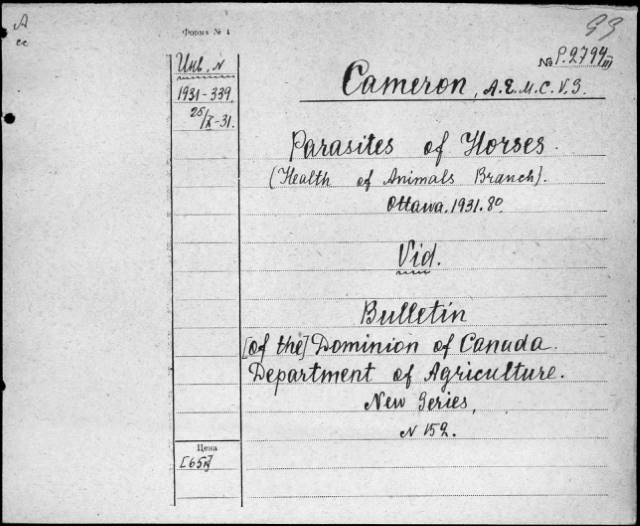 A
cc
Форма № 1
99
№ P.2794/III
Инв. N
1931-339
25/X-31.
Cameron, A.E.M.C.V.S.
Parasites of Horses.
(Health of Animals Branch).
Ottawa. 1931. 8°.
Vid.
Bulletin
[of the] Dominion of Canada.
Department of Agriculture.
New Series,
N 152.
Цена
[65к]